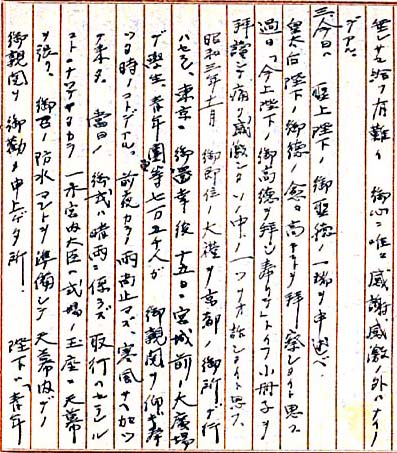 セラレ給フ有難イ御心ニ唯々感謝感激ノ外ハナイノ
デアル。
三、今日ハ今上陛下ノ御聖徳ノ一端ヲ申述ベ
皇太后陛下ノ御徳ノ愈々高キヲ拝察シタイト思フ。
過日「今上陛下ノ御高徳ヲ拝シ奉リテ」トイフ小冊子ヲ
拝読シテ痛ク感激シタソノ中ノ一ツヲオ話シシタイト思フ。
昭和三年十一月 御即位ノ大禮ヲ京都ノ御所デ行
ハセラレ、東京ニ御還幸後十五日ニ宮城前ノ大廣場
デ学生、青年團等七万ユ千人ガ御親閲ヲ仰ギ奉
ツタ時ノコトデアル。前夜カラノ雨尚止マズ、寒風サヘ加ツ
テ来タ。當日ノ御式ハ晴雨ニ係ラズ取行ハセラレル
コトニナツテヰタカラ一木宮内大臣ハ式場ノ玉座ニ天幕
ヲ張リ、御召ノ防水マントヲ準備シテ天幕内デノ
御親閲ヲ御勧メ申上ゲタ所、陛下ハ「青年